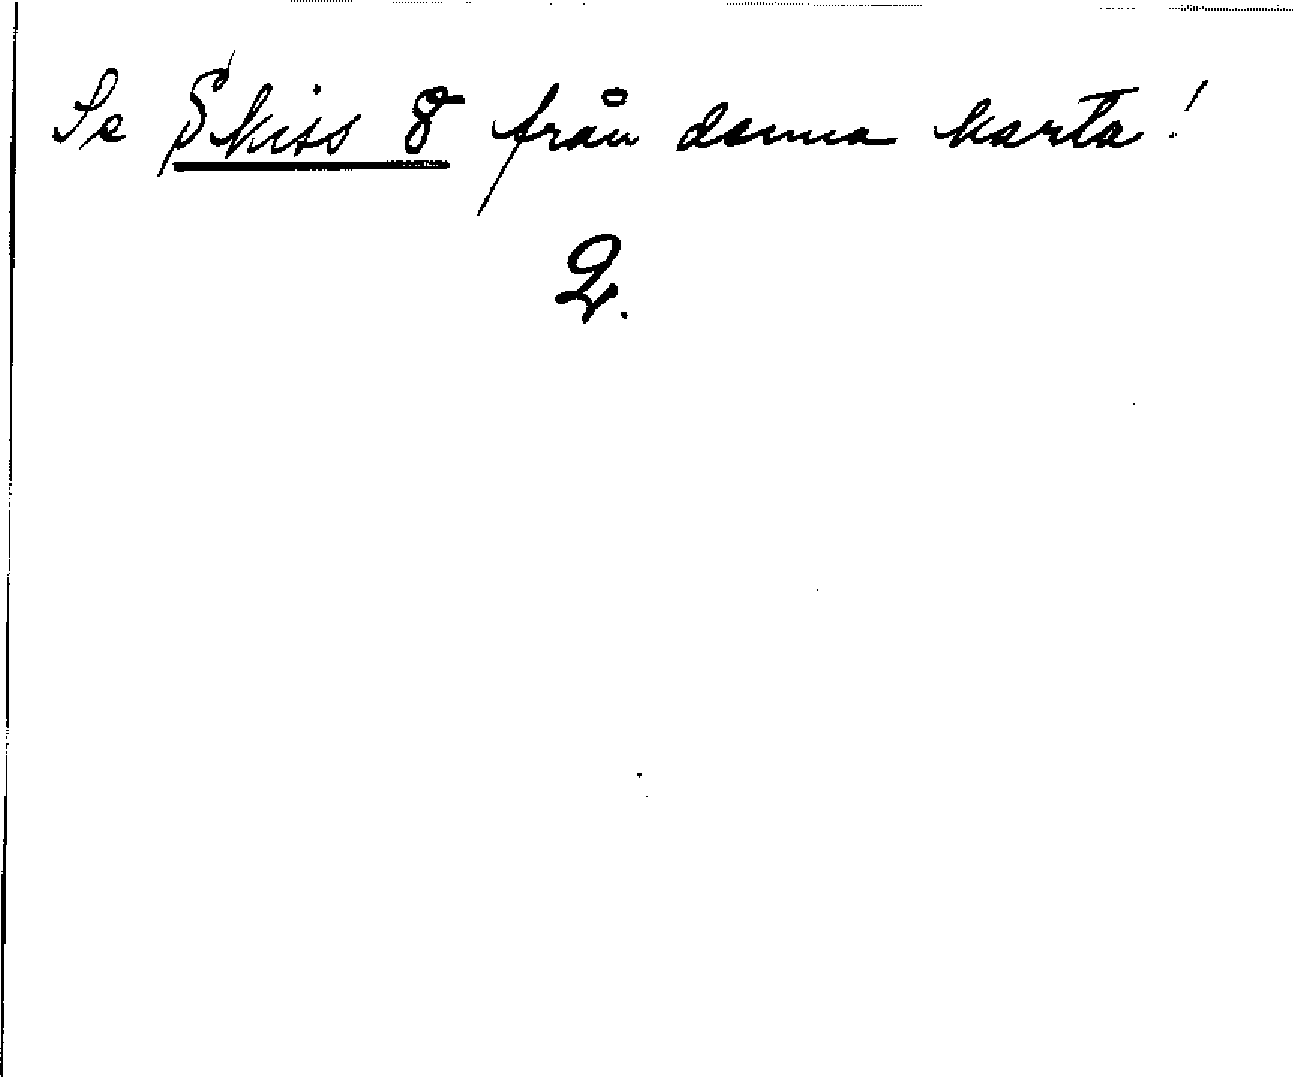 Se Skiss 8 från denna karta!
2.